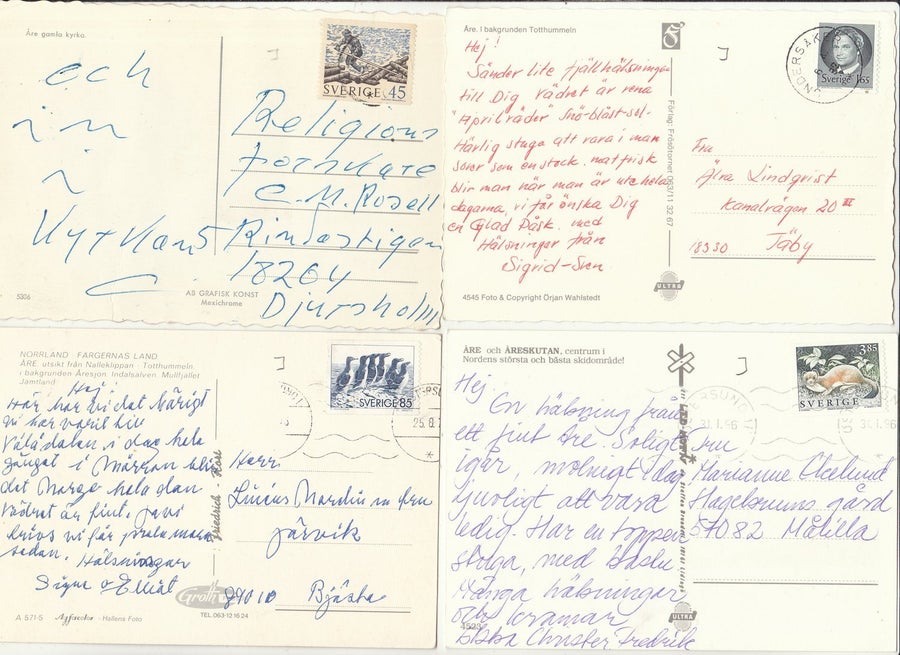 Åre gamla kyrka.
SVERIGE 45
och
i n
i
Kyrkans
Religions
forskare
C.M. Rosell
Rindöstigen
18264
Djursholm
5306
AB GRAFISK KONST
Mexichrome
Åre. I bakgrunden Totthummeln
Hej!
Sänder lite fjällhälsningar
till Dig vädret är rena
"Aprilväder Snö-blåst-sol-
Härlig stuga att vara i man
sover som en stock. matfrisk
blir man när man är ute hela
dagarna, vi får önska Dig
en Glad Påsk. med
Hälsningar från
Sigrid-Sven
Förlag: Frösötornet 063/11 32 67
UNDERSÅKER
Sverige 165
Fru
Älva Lindqvist
Kanalvägen 20 III
18330 Täby
4545 Foto & Copyright Örjan Wahlstedt
ULTRA
NORRLAND FÄRGERNAS LAND
ÅRE. utsikt från Nalleklippan Totthummeln.
i bakgrunden Åresjön. Indalsälven. Mullfjället
Jämtland
Hej!
Här har vi det härligt
vi har varit i
Vålådalen i dag hela
gänget i Morgon blir
det Norge hela dan
Vädret är fint.
vi får prata mera
sedan. Hälsningar
Signe o Elliot
SVERIGE 85
25.8.7
Herr
Linus Nordin
Järvik
89010 Bjästa
Friedrich
Grolls
TEL. 063-12 16 24
A 571-5 Agfacolor - Hallens Foto
ÅRE och ÅRESKUTAN, centrum i
Nordens största och bästa skidområde!
Hej.
En hälsning från
ett fint Åre. Soligt
igår, molnigt idag
Ljuvligt att vara
ledig. Har en toppen
stuga, med bastu
Många hälsningar
och kramar
Ebba Christer Fredrik
3.85
SVERIGE
31.1.96
31.1.96
Fru
Marianne Ekelund
Hagelsrums gård
57082 Målilla
4523
ULTRA